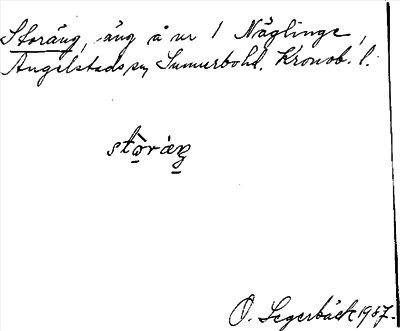 Storäng, äng å nr 1 Näglinge,
Angelstads sn, Sunnerbohd. Kronob. l.
stòràŋ
O. Segerbäck 1937.